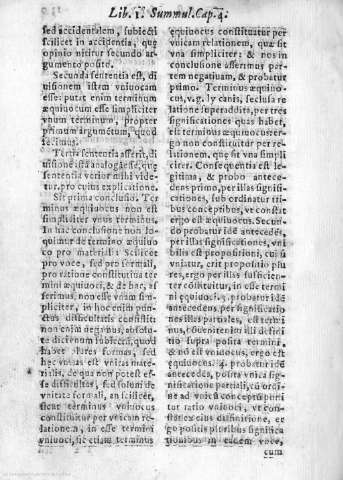 Lib. I. Summul. Cap. 4.
sed accidentalem, subiecti
scilicet in accidentia, que
opinio nititur secundo ar-
gumento positum.
Secunda sententia est, di
uisionem istam vniuocam
esse: putat enim terminum
æquiuocum esse simpliciter
vnum terminum, propter
primum argumẽtum, quod
fecimus.
Tertia sententia asserit, di
uisione istã analogã esse, quę
sententia verior mihi vide
tur, pro cuius explicatione.
Sit prima conclusio. Ter
minus æquiuocus non est
simpliciter vnus terminus.
In hac conclusione non lo-
quimur de termino æquiuo
co pro materiali: scilicet
pro voce, sed pro formali,
pro ratione constitutiua ter
mini æquiuoci, & de hac, as
serimus, non esse vnam sim-
pliciter, in hoc enim pun-
ctus difficultatis consistit
non enim negamus, absolu-
te dicendum subiectũ, quod
habet plures formas, sed
hoc vnitas est vnitas mate-
rialis, de qua non potest es-
se difficultas, sed solum de
vnitate formali, an scilicet,
sicut terminus vniuocus
constituitur per vnicam re-
lationem, in esse termini
vniuoci, sic etiam terminus
equiuocus constituatur per
vnicam relationem, quæ sit
vna simpliciter: & nos in
conclusione asserimus par-
tem negatiuam, & probatur
primo. Terminus æquiuo-
cus, v.g. ly canis, seclusa re
latione superaddita, per tres
significationes quas habet,
est terminus æquiuocus: er-
go non constituitur per re-
lationem, quę sit vna simpli
citer. Consequentia est le-
gitima, & probo antece-
dens primo, per illas signifi-
cationes, sub ordinatur tri-
bus conceptibus, vt constat
ergo est æquiuocus. Secun-
do probatur idẽ antecedẽs,
per illas significationes, vni
bilis est propositioni, cui si
vniatur, erit propositio plu
res, ergo per illas sufficien-
ter cõstituitur, in esse termi
ni equiuoci. 3. probatur idẽ
antecedens, per significatio
nes illas partiales, est termi-
nus, & conuenit ei illi defini
tio supra posita termini,
& nõ est vniuocus, ergo est
equiuocus. 4. probatur idẽ
antecedẽs, posita vnica sig-
nificatione partiali, cũ ordi-
ne ad vnicũ conceptũ poni
tur ratio vniuoci, vt con-
stat ex eius definitione, er
go positis pluribus significa-
tionibus in eadem voce,
cum